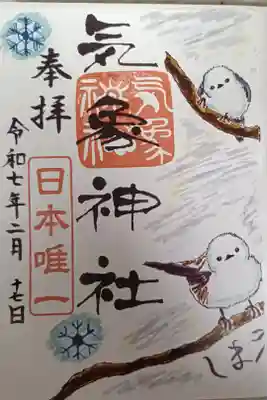 気象神社
奉拝
日本唯一
令和七年二月
十七日
しま